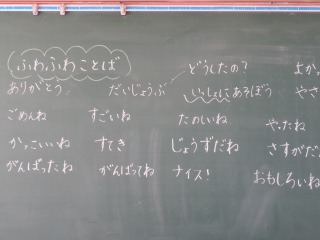 ふわふわことば
どうしたの？ よかっ
ありがとう だいじょうぶ いっしょにあそぼう やさ
ごめんね すごいね たのしいね やったね
かっこいいね すてき じょうずだね さすがだ
がんばったね がんばってね ナイス！ おもしろいね